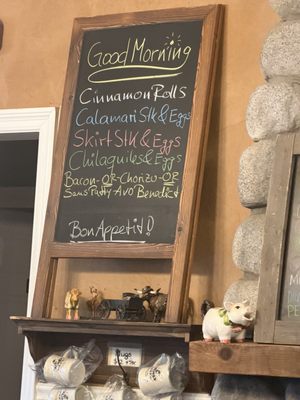 Good Morning
Cinnamon Rolls
Calamari Stk & Eggs
Skirt Stk & Eggs
Chilaquiles & Eggs
Bacon-OR-Chorizo-OR
Saus Patty-Avo Benedict
Bon Appetit!
Mugs